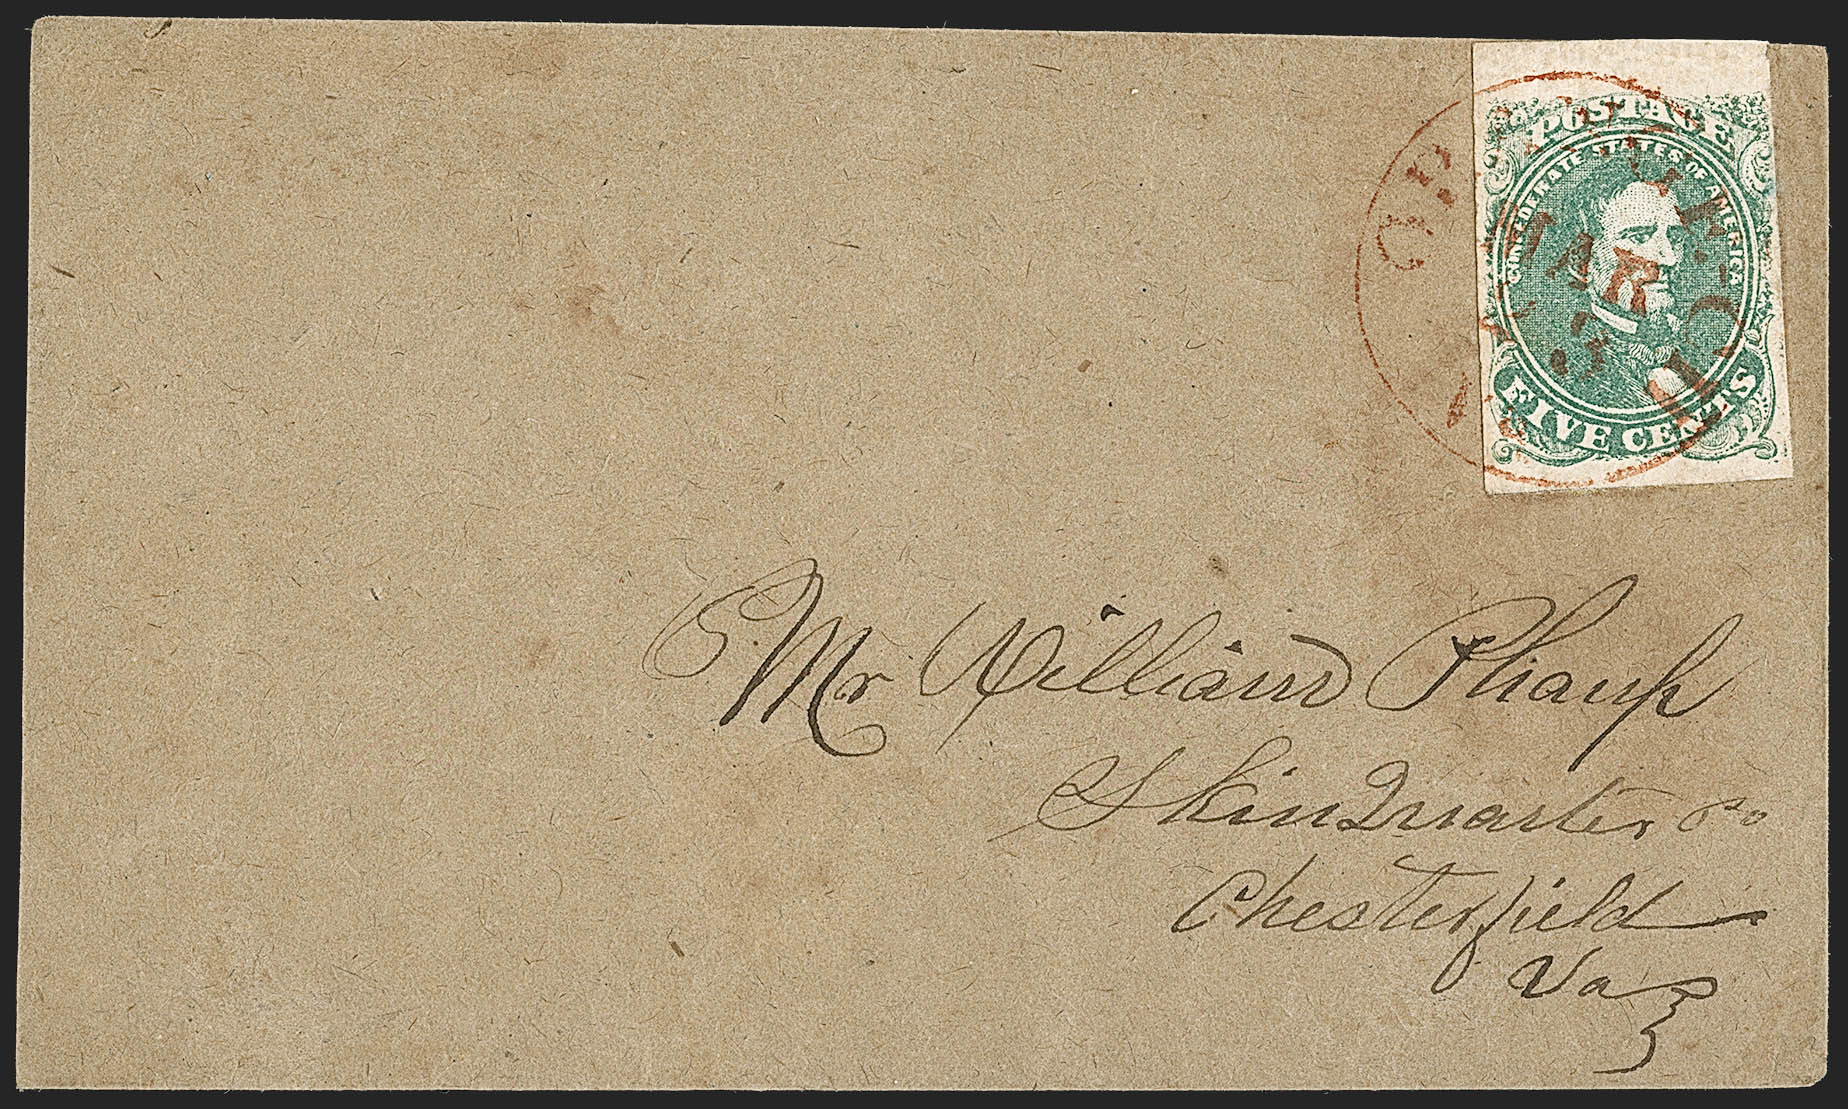 POSTAGE
CONFEDERATE STATES OF AMERICA
FIVE CENTS
MAR
3
Mr William Phaup
Skin Quarter Po
Chesterfield
Va